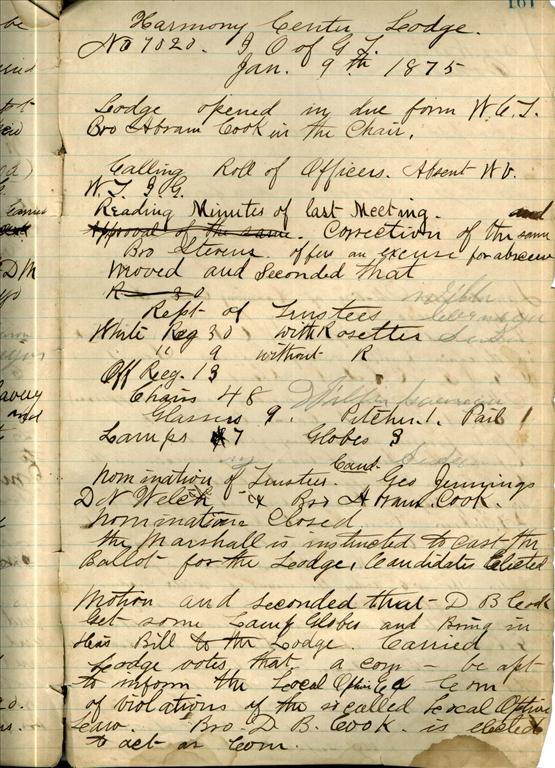 161
Harmony Center Lodge.
No 7020. I O of G T.
Jan. 9th 1875
Lodge opened in due form W.C.T.
Bro Abram Cook in the Chair.
Calling Roll of Officers. Absent W V.
W. T. I G.
Reading Minutes of last Meeting. and
Approval of the same. Correction of the same
Bro Stevens offers an excuse for absence
Moved and Seconded that
R 30
Rept of Trustees
White Reg 30 with Rosettes
" " 9 without R
Off Reg. 13
Chairs 48
Glasses 9. Pitcher 1. Pail 1
Lamps 7 Globes 3
Cand.
Nomination of Trustees. Geo Jennings
D N Welch & Bro Abram Cook.
Nominations Closed
the Marshall is instructed to cast the
Ballot for the Lodge, Candidates Elected
Motion and Seconded that D B Cook
Get some Lamp Globes and Bring in
His Bill to the Lodge. Carried
Lodge votes that a com be apt
to inform the Local Option Com
of violations of the so called Local Option
Law. Bro. D. B. Cook. is elected
to act as Com.